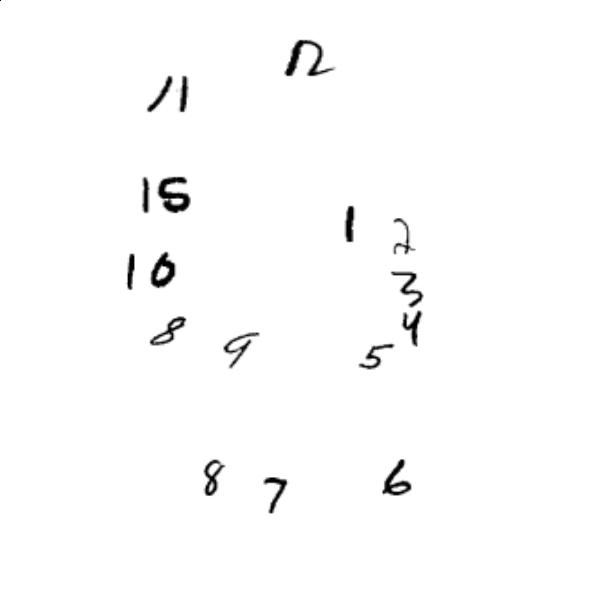 12
11
15
1 2
10
3
4
8 9 5
8 7 6